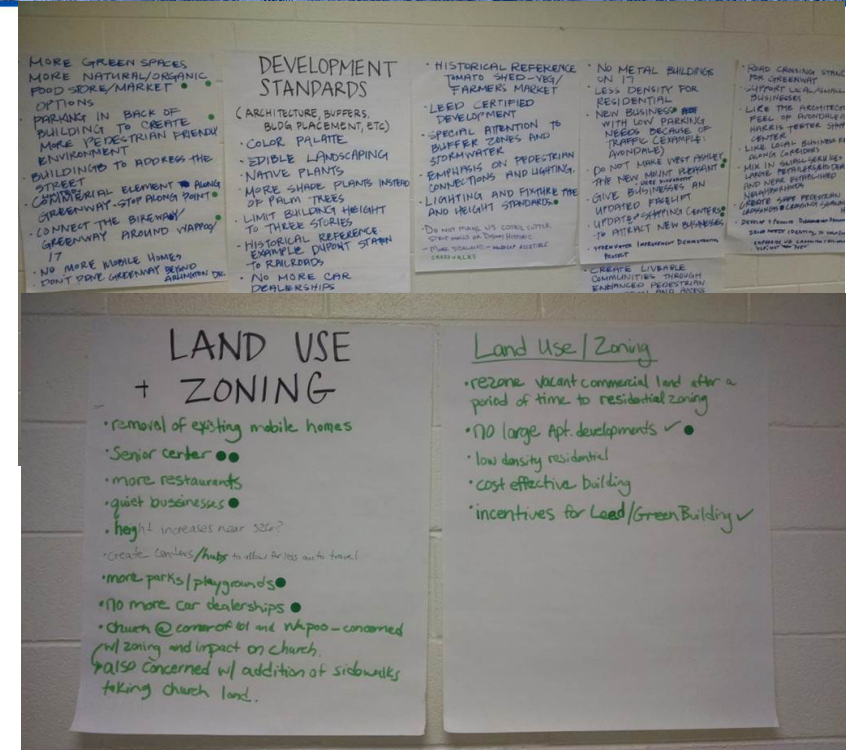 MORE GREEN SPACES
MORE NATURAL/ORGANIC
FOOD STORE/MARKET
OPTIONS
PARKING IN BACK OF
BUILDING TO CREATE
MORE PEDESTRIAN FRIENDLY
ENVIRONMENT
BUILDINGS TO ADDRESS THE
STREET
COMMERCIAL ELEMENT ALONG
GREENWAY - STOP ALONG POINT
CONNECT THE BIKEWAY/
GREENWAY AROUND WAPPOO/
17
• NO MORE MOBILE HOMES
DON'T PAVE GREENWAY BEYOND
ARLINGTON DR.
DEVELOPMENT
STANDARDS
(ARCHITECTURE, BUFFERS,
BLDG PLACEMENT, ETC)
• COLOR PALATE
• EDIBLE LANDSCAPING
• NATIVE PLANTS
• MORE SHADE PLANTS INSTEAD
OF PALM TREES
• LIMIT BUILDING HEIGHT
TO THREE STORIES
• HISTORICAL REFERENCE
EXAMPLE DUPONT STATION
TO RAILROADS
• NO MORE CAR
DEALERSHIPS
• HISTORICAL REFERENCE
TOMATO SHED - VEG/
FARMERS MARKET
• LEED CERTIFIED
DEVELOPMENT
• SPECIAL ATTENTION TO
BUFFER ZONES AND
STORMWATER
• EMPHASIS ON PEDESTRIAN
CONNECTIONS AND LIGHTING.
• LIGHTING AND FIXTURE TYPE
AND HEIGHT STANDARDS
CROSSWALKS
• NO METAL BUILDINGS
ON 17
• LESS DENSITY FOR
RESIDENTIAL
• NEW BUSINESS
WITH LOW PARKING
NEEDS BECAUSE OF
TRAFFIC (EXAMPLE:
AVONDALE)
• DO NOT MAKE WEST ASHLEY
THE NEW MOUNT PLEASANT
• GIVE BUSINESSES AN
UPDATED FACELIFT
• UPDATE SHOPPING CENTERS
TO ATTRACT NEW BUSINESSES
• CREATE LIVEABLE
COMMUNITIES THROUGH
ENHANCED PEDESTRIAN
AND ACCESS
• ROAD CROSSING
FOR GREENWAY
• SUPPORT LOCAL/SMALL
BUSINESSES
• LIKE THE
FEEL OF AVONDALE
HARRIS TEETER
CENTER
• LIKE LOCAL BUSINESS
ALONG CORRIDORS
AND NEAR ESTABLISHED
NEIGHBORHOODS
• CREATE SAFE PEDESTRIAN
LAND USE
+ ZONING
• removal of existing mobile homes
• Senior center
• more restaurants
• quiet bussinesses
• height increases near 526?
• create centers/hubs to allow for less auto travel
• more parks/playgrounds
• no more car dealerships
• Church @ corner of 61 and Wapoo - concerned
w/ zoning and impact on church.
also concerned w/ addition of sidewalks
taking church land.
Land Use/Zoning
• rezone vacant commercial land after a
period of time to residential zoning
• no large Apt. developments ✓
• low density residential
• cost effective building
• incentives for Leed/Green Building ✓